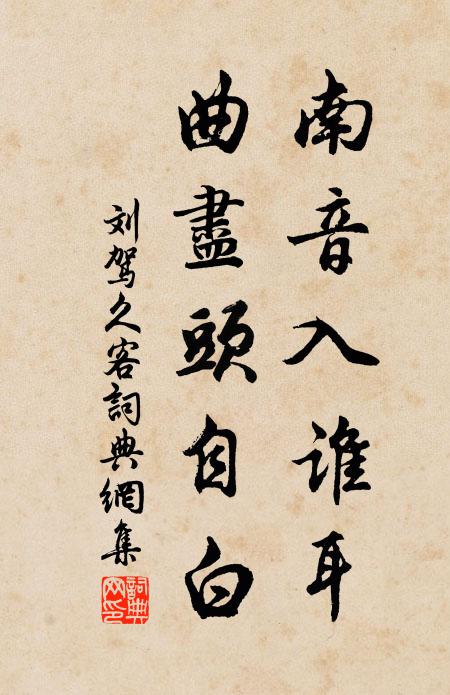 南音入谁耳
曲盡頭自白
刘驾久客詞典網集
詞典网印